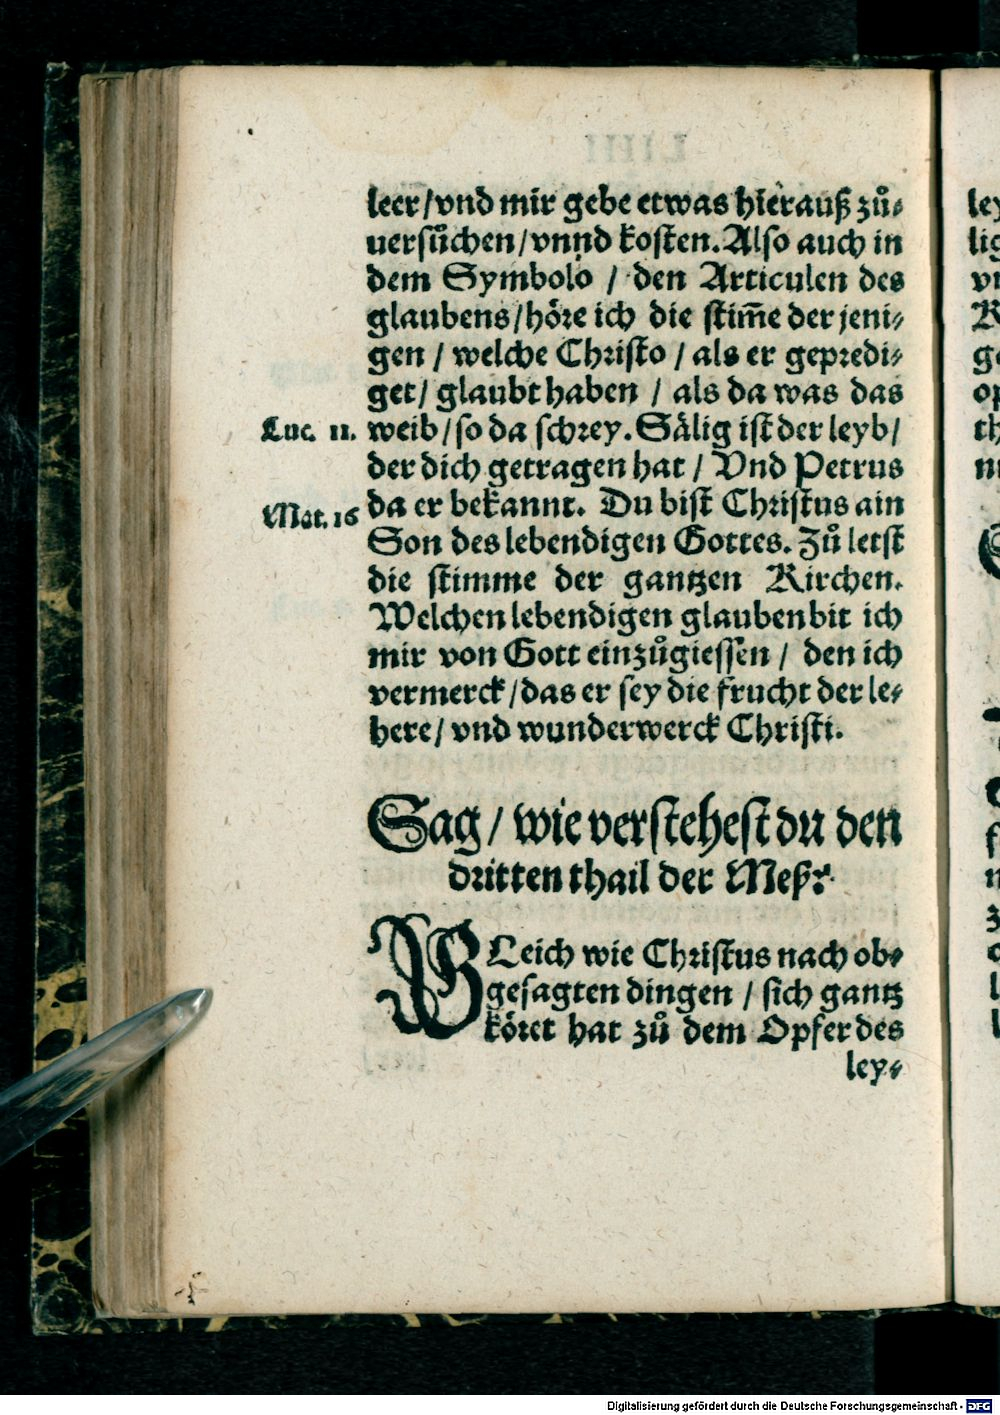 leer/vnd mir gebe etwas hierauß zů⸗
uersůchen/vnnd kosten. Also auch in
dem Symbolo / den Articulen des
glaubens/höre ich die stim̃e der jeni⸗
gen / welche Christo / als er gepredi⸗
get/ glaubt haben / als da was das
Luc. 11. weib/so da schrey. Sälig ist der leyb/
der dich getragen hat / Vnd Petrus
Mat. 16 da er bekannt. Du bist Christus ain
Son des lebendigen Gottes. Zů letst
die stimme der gantzen Kirchen.
Welchen lebendigen glauben bit ich
mir von Gott einzůgiessen / den ich
vermerck/das er sey die frucht der le⸗
here/ vnd wunderwerck Christi.
Sag/ wie verstehest du den
dritten thail der Meß?
GLeich wie Christus nach ob⸗
gesagten dingen / sich gantz
köret hat zů dem Opfer des
ley⸗
Digitalisierung gefördert durch die Deutsche Forschungsgemeinschaft - DFG